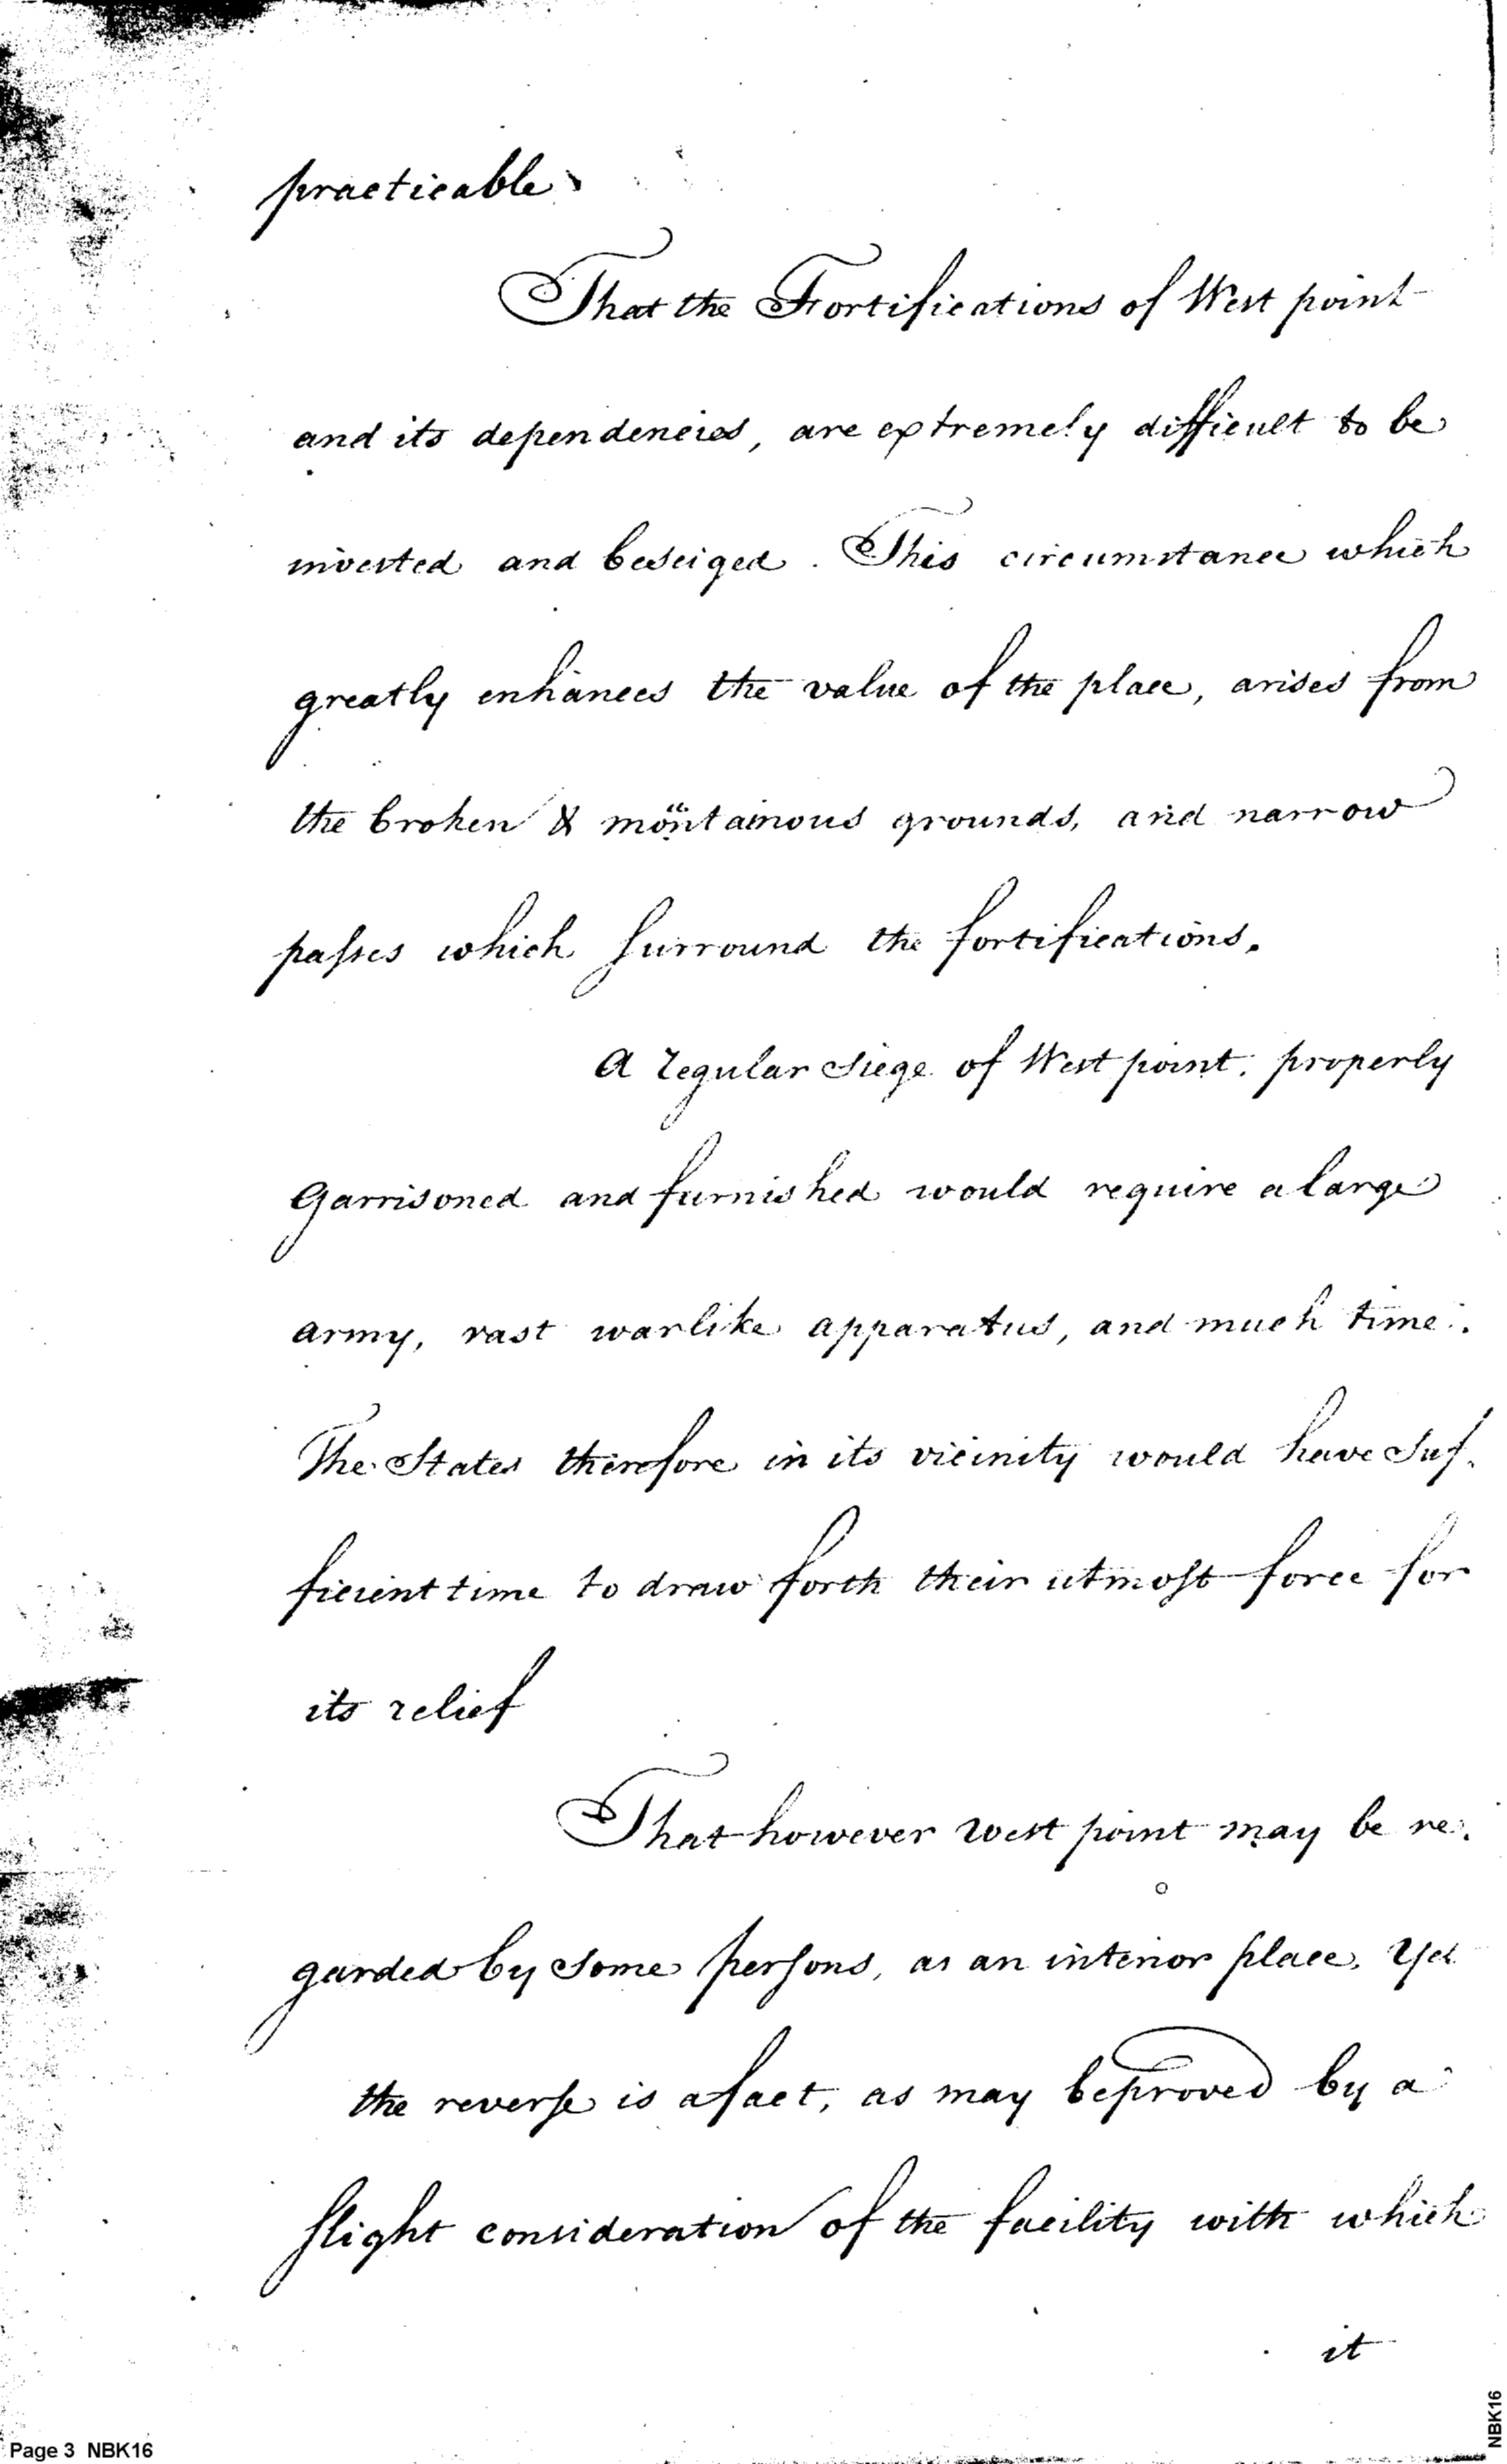 practicable
That the Fortifications of West point
and its dependencies, are extremely difficult to be
invested and beseiged. This circumstance which
greatly enhances the value of the place, arises from
the broken & montainous grounds, and narrow
paſses which ſurround the fortifications.
A regular siege of West point, properly
Garrisoned and furnished would require a large
army, vast warlike apparatus, and much time.
The States therefore in its vicinity would have suf-
ficient time to draw forth their utmoſt force for
its relief
That however West point may be re-
garded by some perſons, as an interior place, yet
the reverſe is a fact, as may be proved by a
ſlight consideration of the facility with which
it
Page 3 NBK16
NBK16